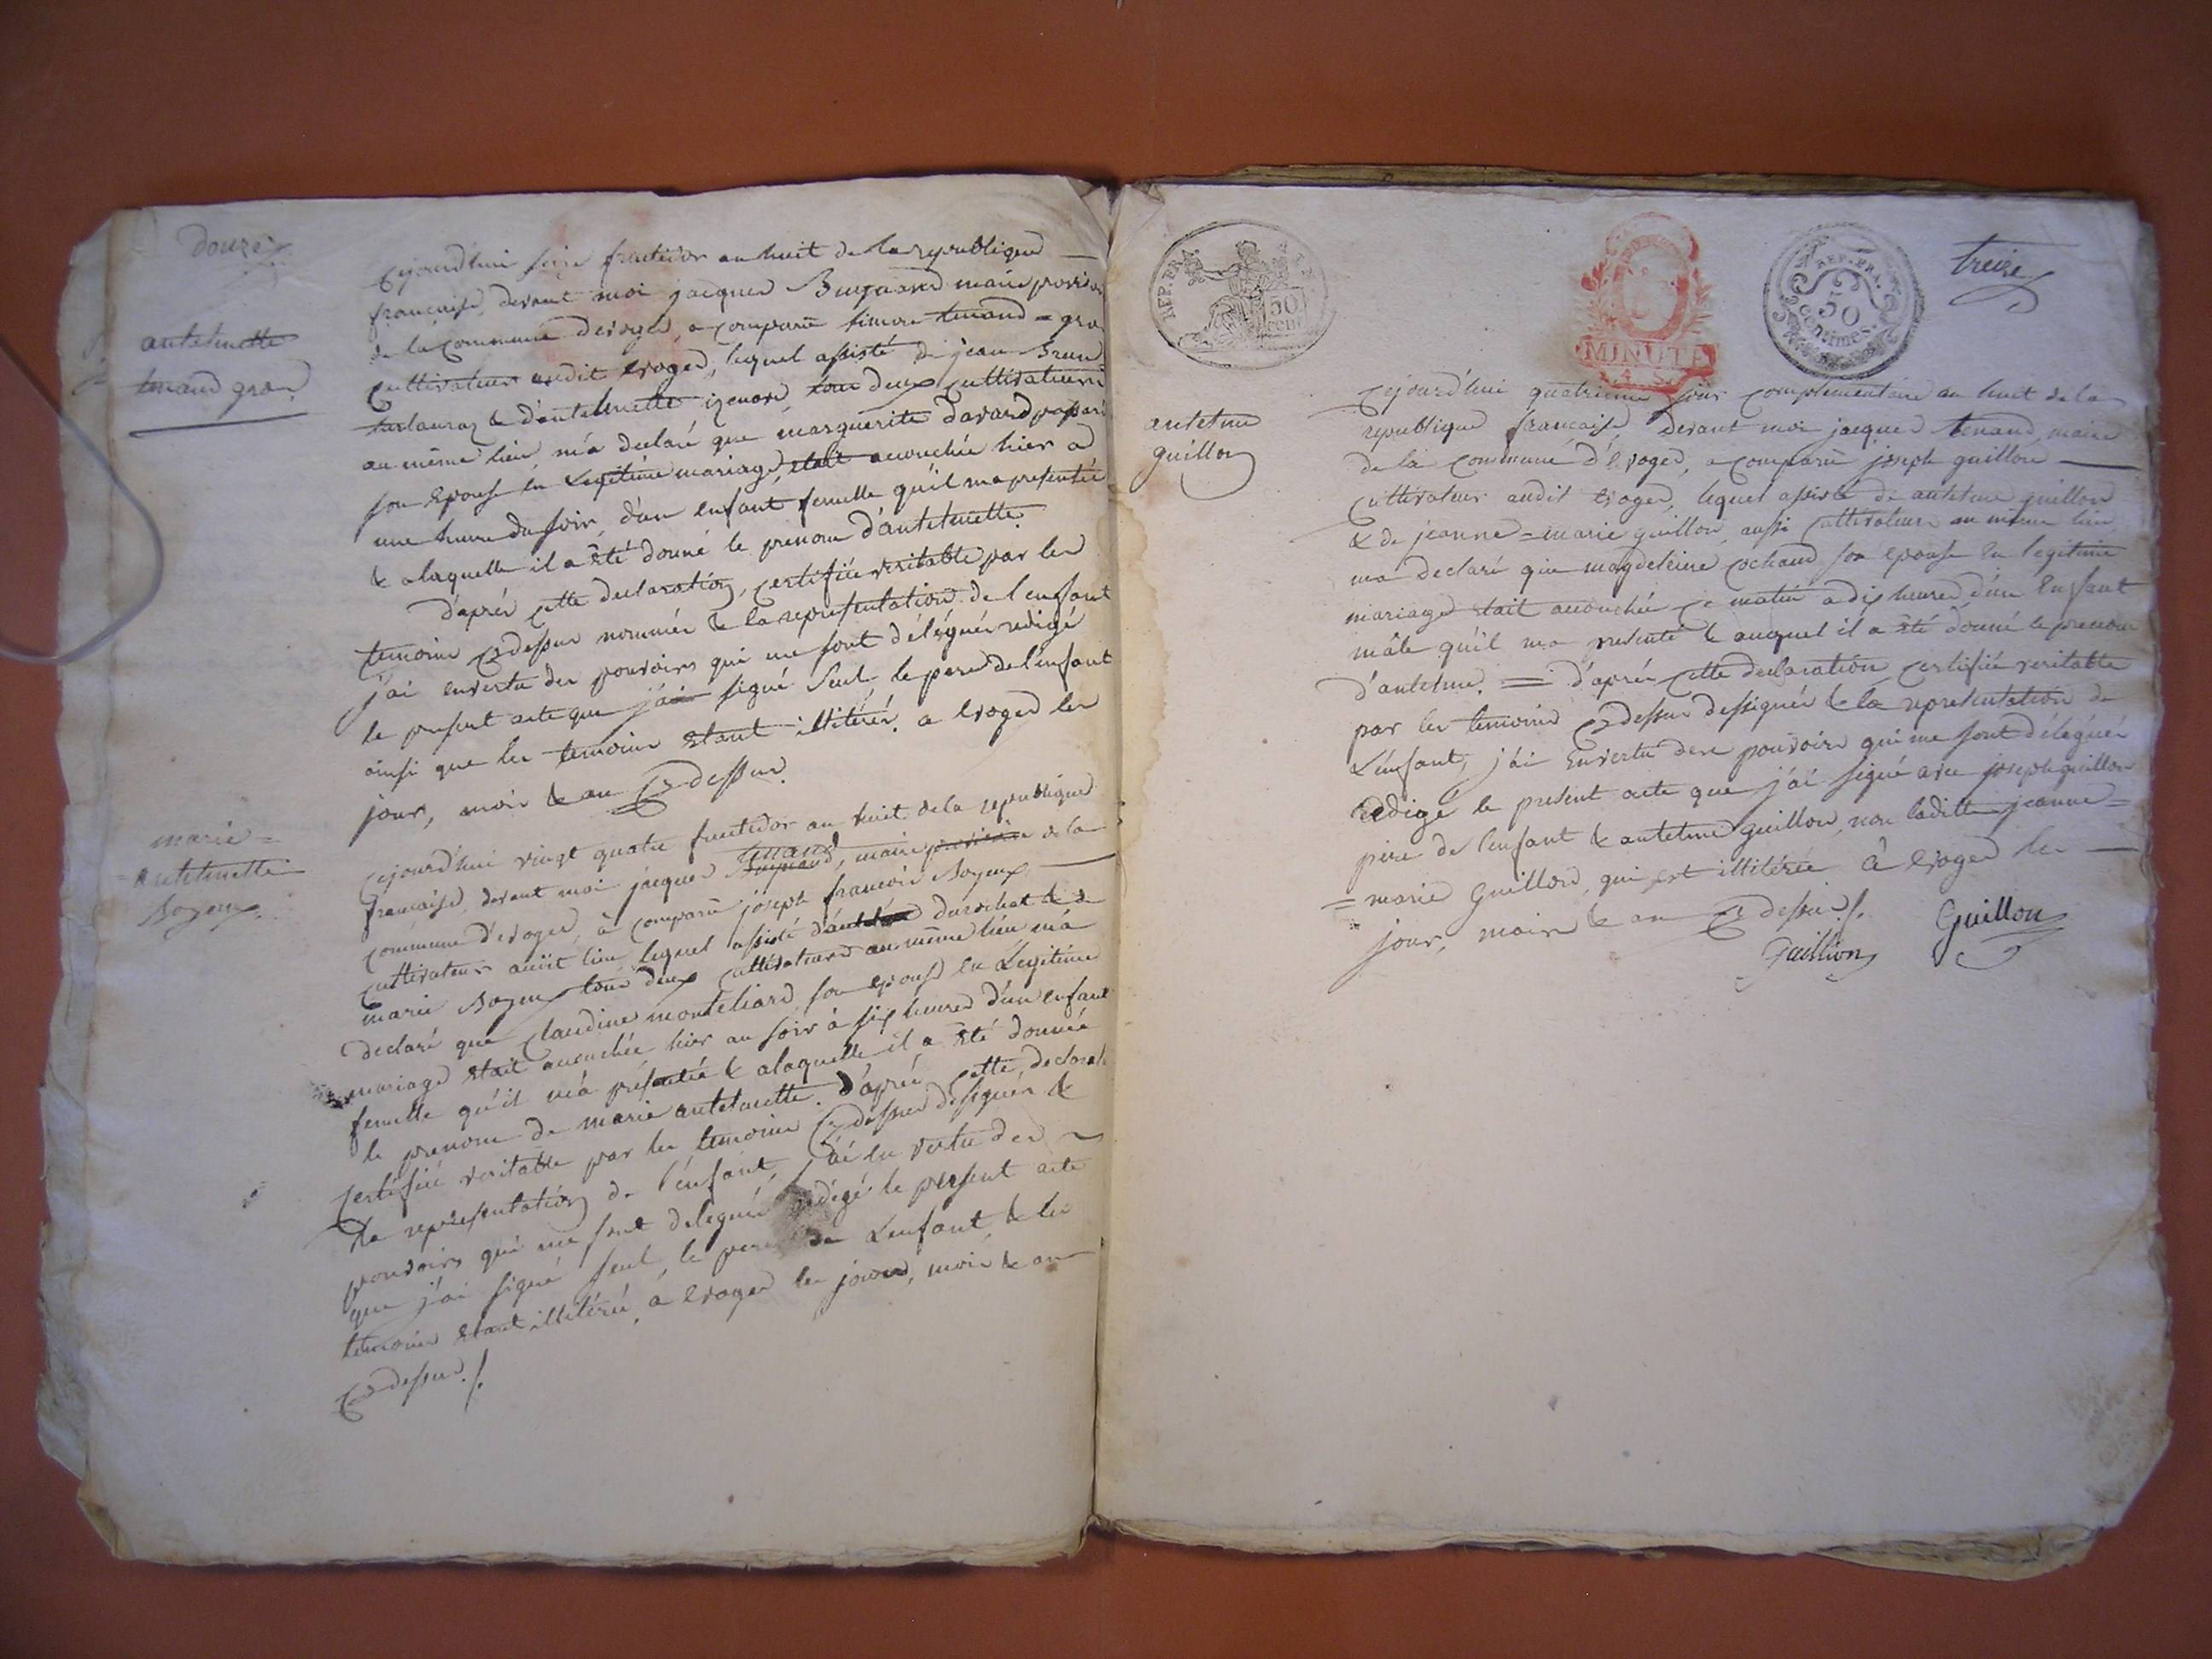 douze
antelmette
tenand gros
cejourd'hui seize fructidor an huit de la republique
française, devant moi jacques Bugnand maire provisoire
de la commune d'evoges, a comparu simon tenand = gros
cultivateur audit evoges, lequel assisté de jean Brun
& d'antelmette tous deux cultivateurs
au même lieu, m'a declaré que marguerite davard
son epouse en Legitime mariage, etait accouchée hier a
une heure du soir, d'un enfant femelle qu'il ma presentée
& alaquelle il a été donné le prenom d'antelmette.
d'après cette declaration, certifiée veritable par les
temoins cy dessus nommés & la representation de l'enfant
j'ai envertu des pouvoirs qui me sont délégués redigé
le present acte que j'ai signé seul le pere de l'enfant
ainsi que les temoins etant illitérés. a evoges les
jour, mois & an cy dessus.
marie =
antelmette
Boyeux.
cejourd'hui vingt quatre fructidor an huit de la republique
tenand
française, devant moi jacques Bugnand, maire provisoire de la
commune d'evoges, à comparu joseph francois Boyeux
cultivateur audit lieu, lequel assisté d'antelme Durochat & de
marie Boyeux tous deux cultivateurs au même lieu m'a
declaré que Claudine monteliard son epouse en Legitime
mariage etait accouchée hier au soir à six heures d'un enfant
femelle qu'il m'a présentée & alaquelle il a été donnée
le prenom de marie antelmette. d'après cette declarat.
certifiée veritable par les temoins cy dessus designés &
la representation de l'enfant, j'ai en vertu des
pouvoirs qui me sont delegués redigé le present acte
que j'ai signé seul, le pere de L'enfant, & les
temoins etant illitérés, a evoges les jours, mois & an
cy dessus ./.
REP. FRA.
50
cent
MINUTE
REP. FRA.
50
centimes
treize
antelme
guillon
cejourd'hui quatrieme jour complementaire an huit de la
republique francaise, devant moi jacques tenand, maire
de la commune d'evoges, a comparu joseph guillon
cultivateur audit evoges, lequel assisté de antelme guillon
& de jeanne = marie guillon, aussi cultivateurs au même lieu
ma declaré que magdeleine cochaud son epouse en legitime
mariage etait accouchée ce matin a dix heures d'un Enfant
mâle qu'il ma presenté & auquel il a été donné le prenom
d'antelme. = d'après cette declaration certifiée veritable
par les temoins cy dessus dessignés & la representation de
L'enfant, j'ai Envertu des pouvoirs qui me sont délégués
redigé le present acte que j'ai signé avec joseph guillon
père de l'enfant & antelme guillon, non laditte jeanne =
= marie Guillon, qui est illitérée à evoges les
jour, mois & an cy dessus ./.
Guillion
Guillon